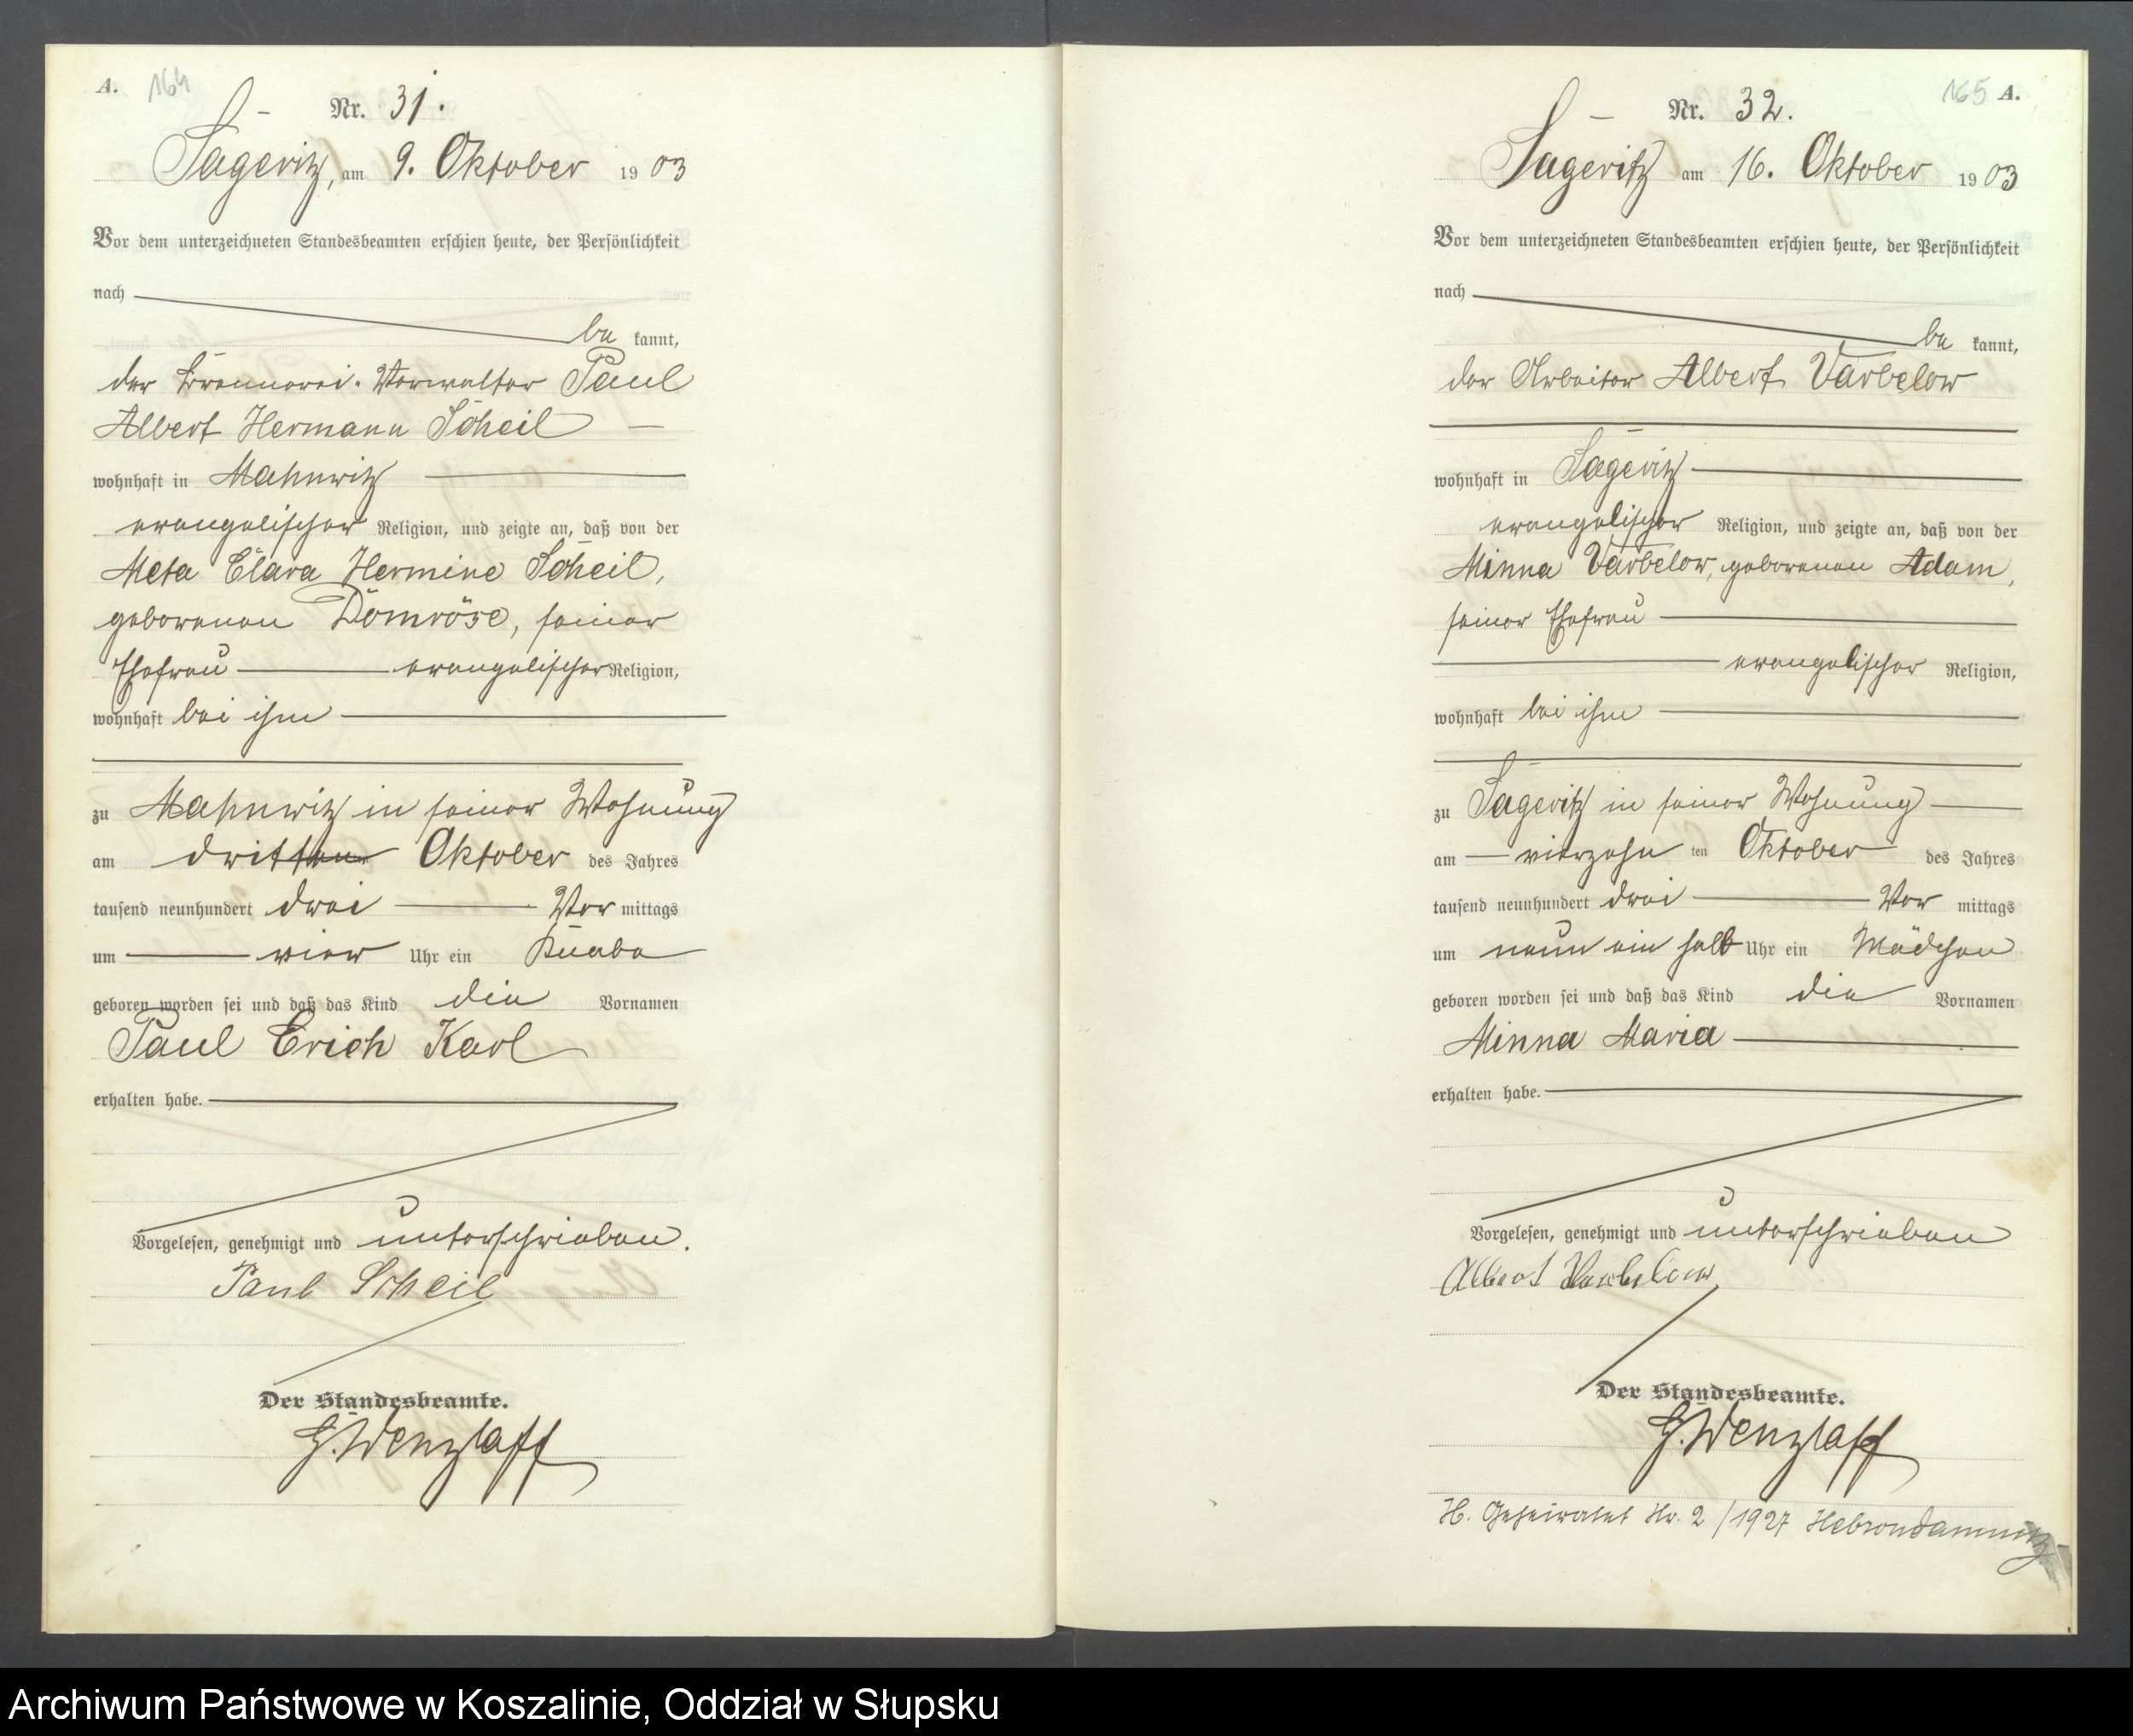 A. 164
Nr. 31.
Sageritz, am 9. Oktober 1903
Vor dem unterzeichneten Standesbeamten erschien heute, der Persönlichkeit
nach
be kannt,
der Brennerei-Verwalter Paul
Albert Hermann Scheil
wohnhaft in Mahnwitz
evangelischer Religion, und zeigte an, daß von der
Meta Clara Hermine Scheil,
geborenen Domröse, seiner
Ehefrau evangelischer Religion,
wohnhaft bei ihm
zu Mahnwitz in seiner Wohnung
am dritten Oktober des Jahres
tausend neunhundert drei Vor mittags
um vier Uhr ein Knabe
geboren worden sei und daß das Kind die Vornamen
Paul Erich Karl
erhalten habe.
Vorgelesen, genehmigt und unterschrieben.
Paul Scheil
Der Standesbeamte.
G. Wenzlaff
165 A.
Nr. 32.
Sageritz am 16. Oktober 1903
Vor dem unterzeichneten Standesbeamten erschien heute, der Persönlichkeit
nach
be kannt,
der Arbeiter Albert Varbelow
wohnhaft in Sageritz
evangelischer Religion, und zeigte an, daß von der
Minna Varbelow, geborenen Adam,
seiner Ehefrau
evangelischer Religion,
wohnhaft bei ihm
zu Sageritz in seiner Wohnung
am vierzehn ten Oktober des Jahres
tausend neunhundert drei Vor mittags
um neun ein halb Uhr ein Mädchen
geboren worden sei und daß das Kind die Vornamen
Minna Maria
erhalten habe.
Vorgelesen, genehmigt und unterschrieben
Albert Varbelow
Der Standesbeamte.
G. Wenzlaff
H. Geheiratet Nr. 2/1927 Hebrondamnitz
Archiwum Państwowe w Koszalinie, Oddział w Słupsku